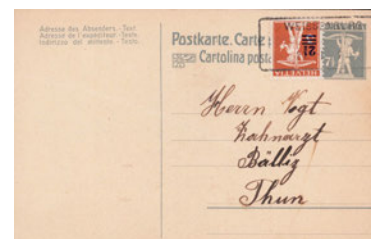 Adresse des Absenders. - Text
Adresse de l'expéditeur. - Texte
Indirizzo del mittente. - Testo
Postkarte. Carte
Cartolina posta
HELVETIA
HELVETIA
7½
Herrn Vogt
Zahnarzt
Bälliz
Thun